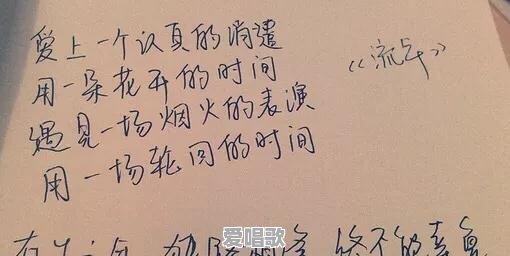 爱上一个认真的消遣
用一朵花开的时间
《流年》
遇见一场烟火的表演
用一场轮回的时间
爱唱歌